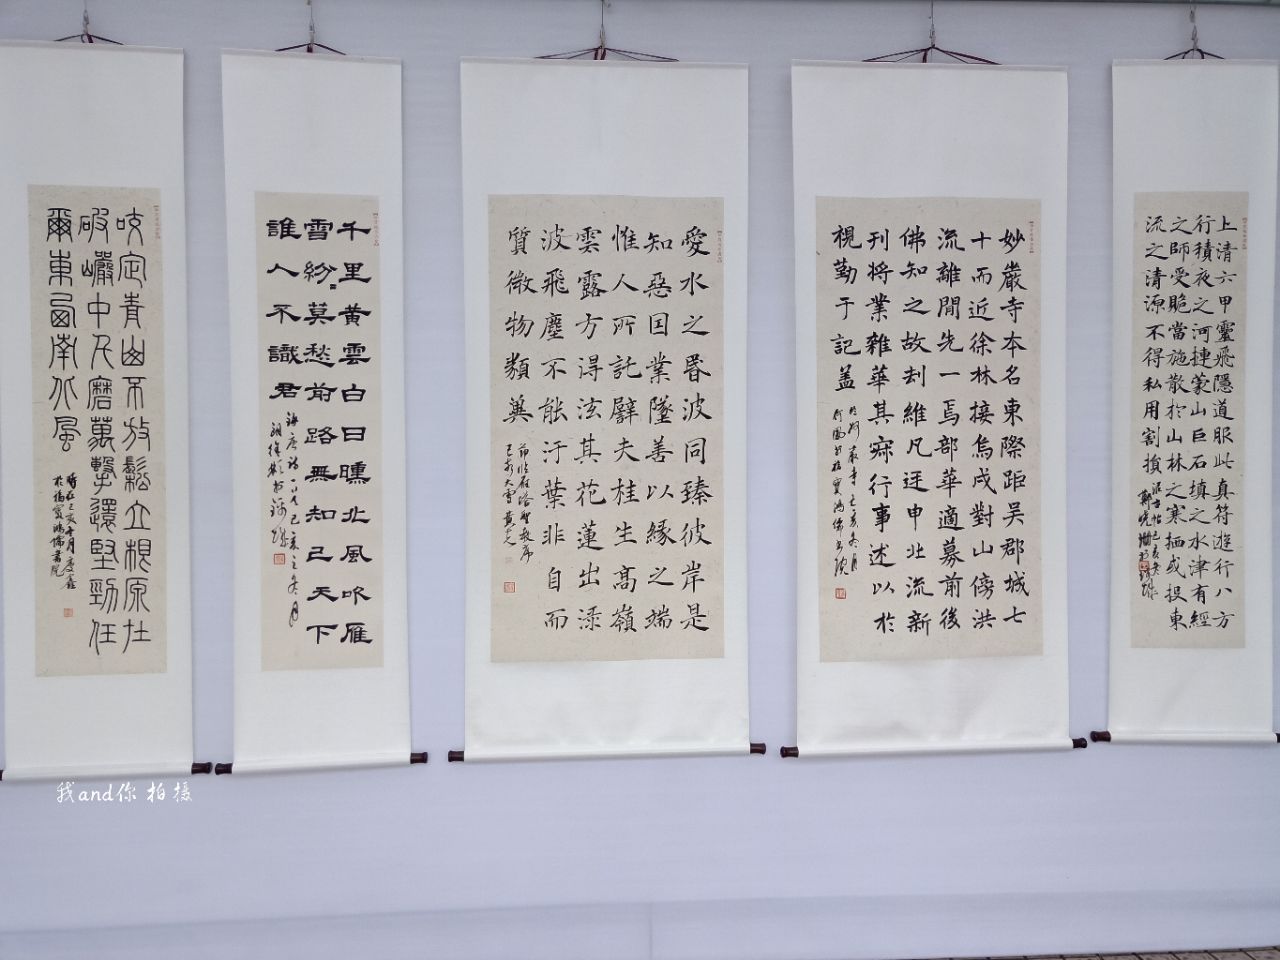 上清六甲靈飛隱道服此真符遊行八方
行積夜之河揵蒙山巨石填之水津有經
之師受賂當施散於山林之寒栖或投東
流之清源不得私用割損
妙嚴寺本名東際距吳郡城七
十而近徐林接烏戍對山傍洪
流離閒先一焉部華適募前後
佛知之故刦維凡迓申北流新
刊將業雜華其寂行事述以於
視勤于記蓋
愛水之昏波同臻彼岸是
知惡因業墜善以緣之端
惟人所託譬夫桂生高嶺
雲露方得泫其花蓮出淥
波飛塵不能汙葉非自而
質微物類
節臨雁塔聖教序
千里黃雲白日曛北風吹雁
雪紛莫愁前路無知己天下
誰人不識君
咬定青山不放鬆立根原在
破巖中千磨萬擊還堅勁任
爾東西南北風
時在己亥年十月
於福寶鴻儒書院
我and你 拍摄